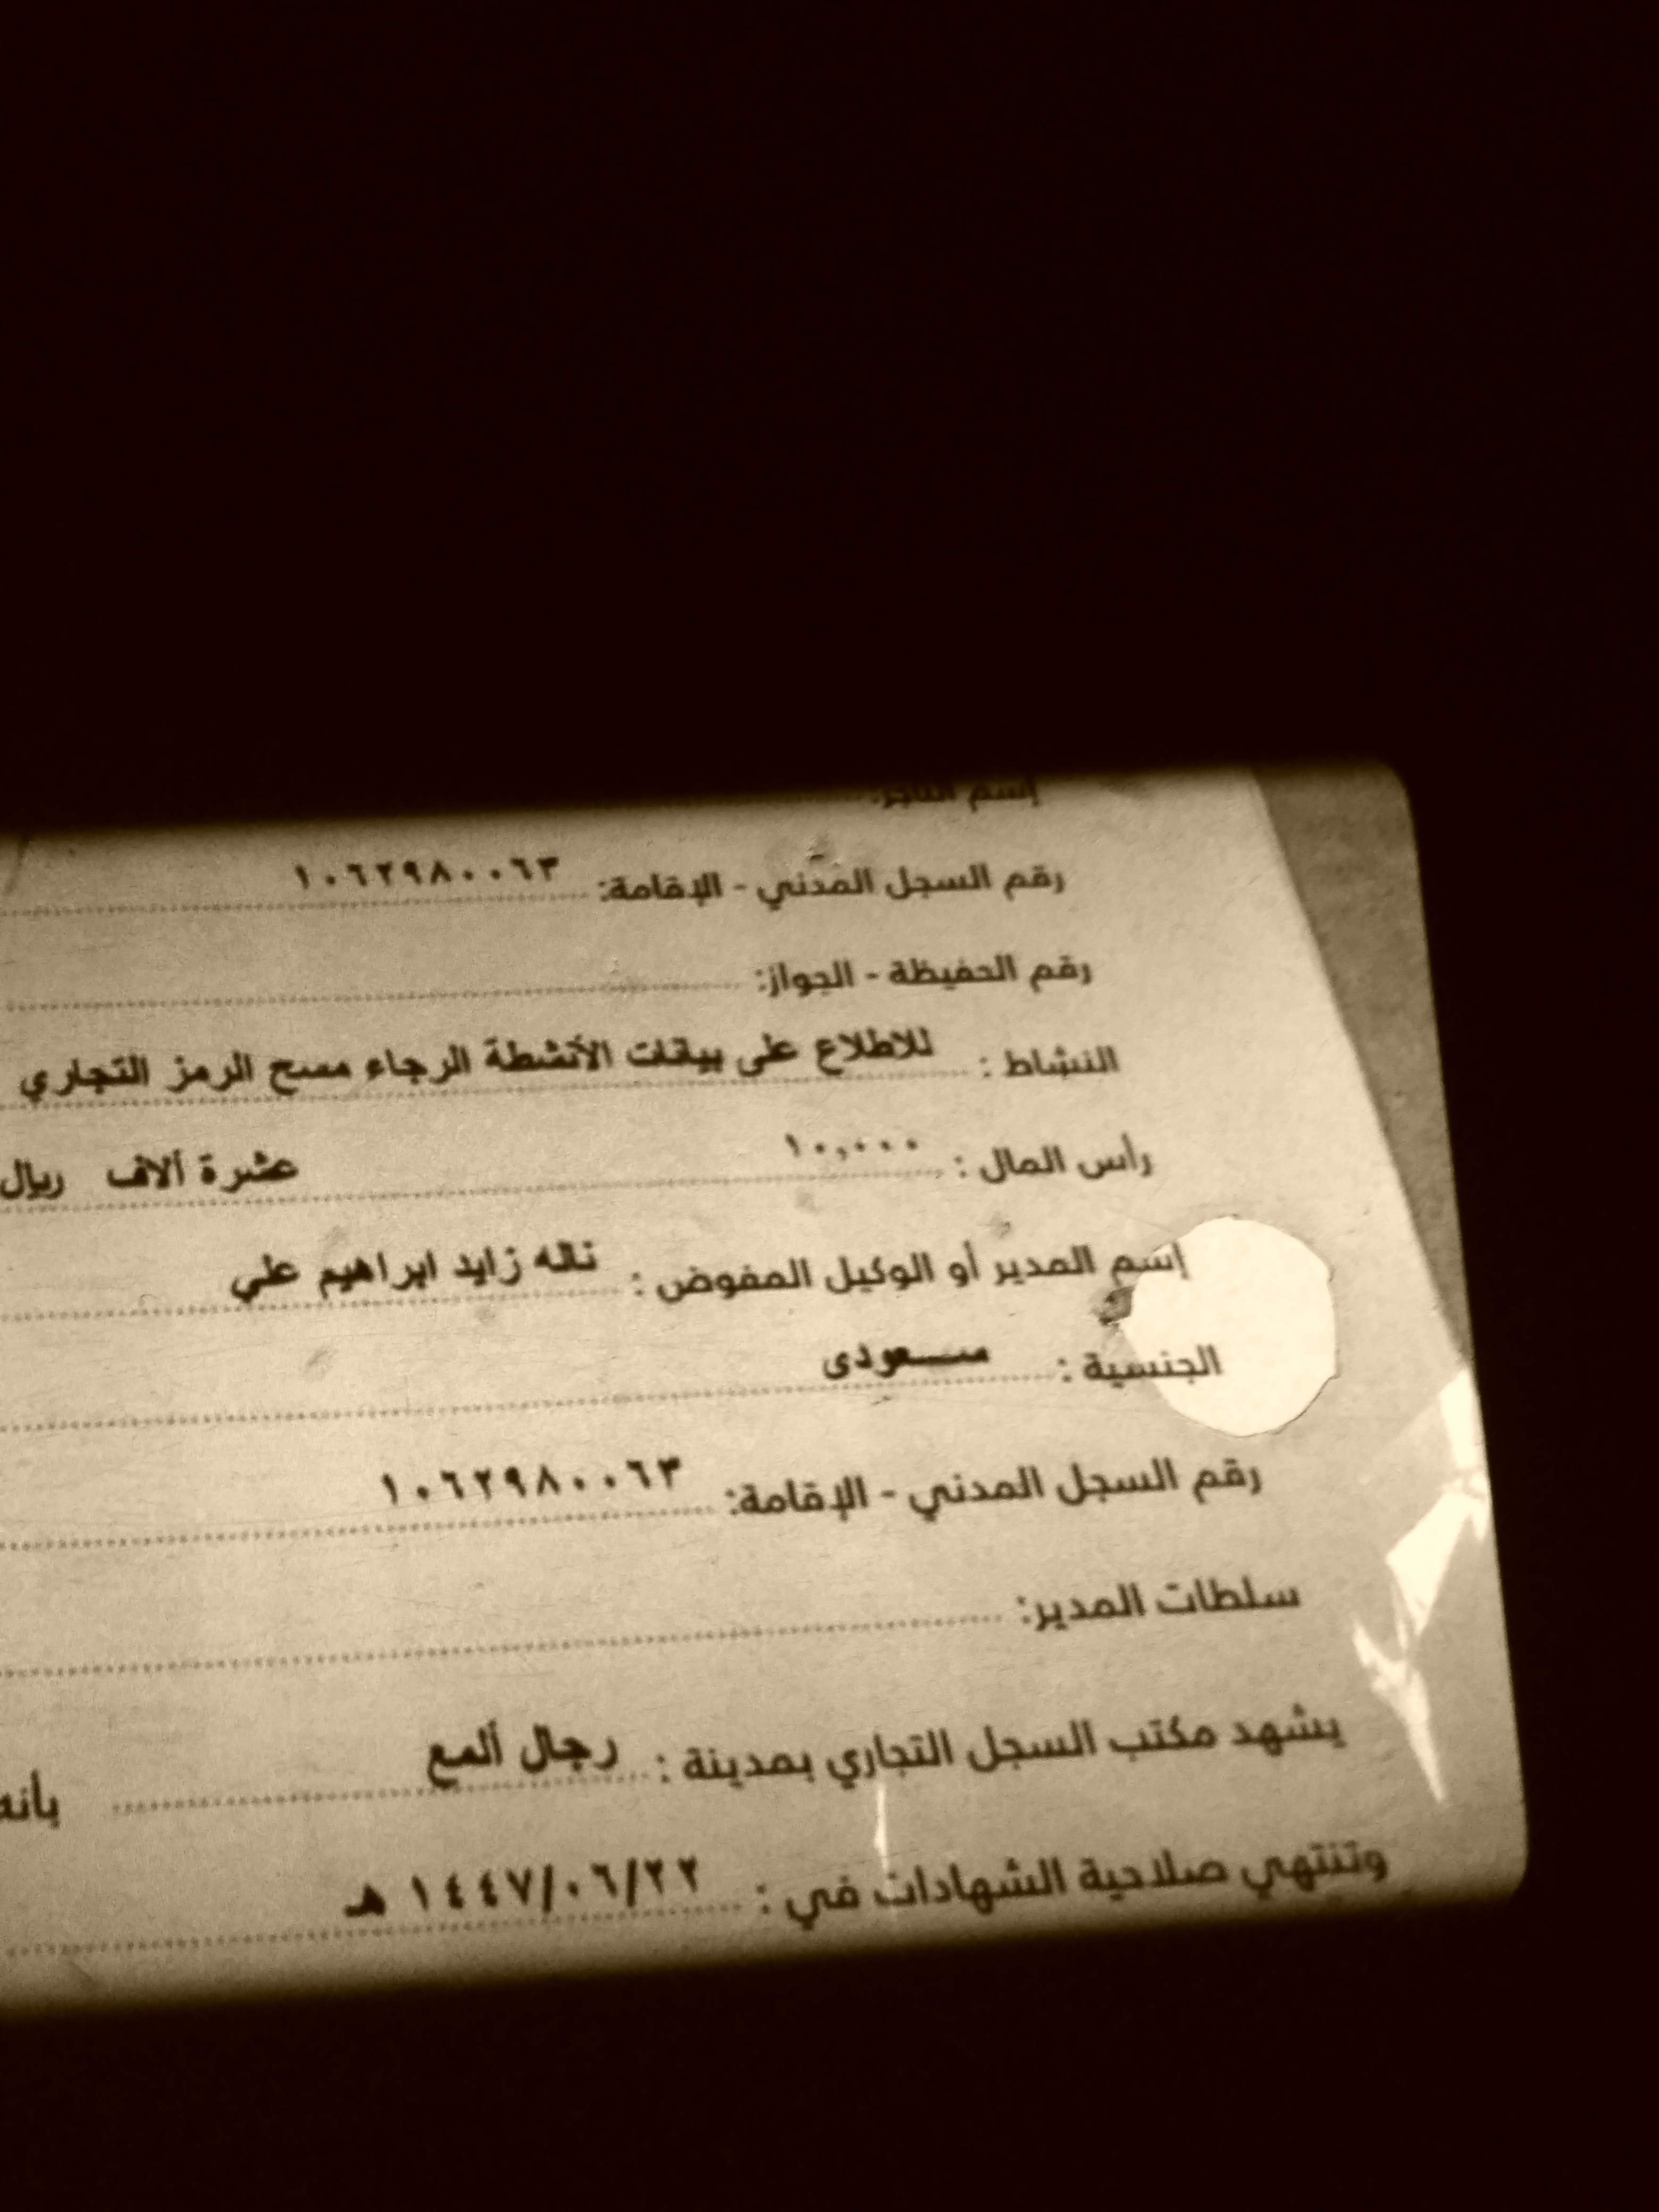 إسم التاجر:
رقم السجل المدني - الإقامة: ١٠٦٢٩٨٠٠٦٣
رقم الحفيظة - الجواز:
النشاط : للاطلاع على بيانات الأنشطة الرجاء مسح الرمز التجاري
رأس المال : ١٠,٠٠٠ عشرة ألاف ريال
إسم المدير أو الوكيل المفوض : ناله زايد ابراهيم علي
الجنسية : سعودى
رقم السجل المدني - الإقامة: ١٠٦٢٩٨٠٠٦٣
سلطات المدير:
يشهد مكتب السجل التجاري بمدينة : رجال ألمع بأنه
وتنتهي صلاحية الشهادات في : ١٤٤٧/٠٦/٢٢ هـ